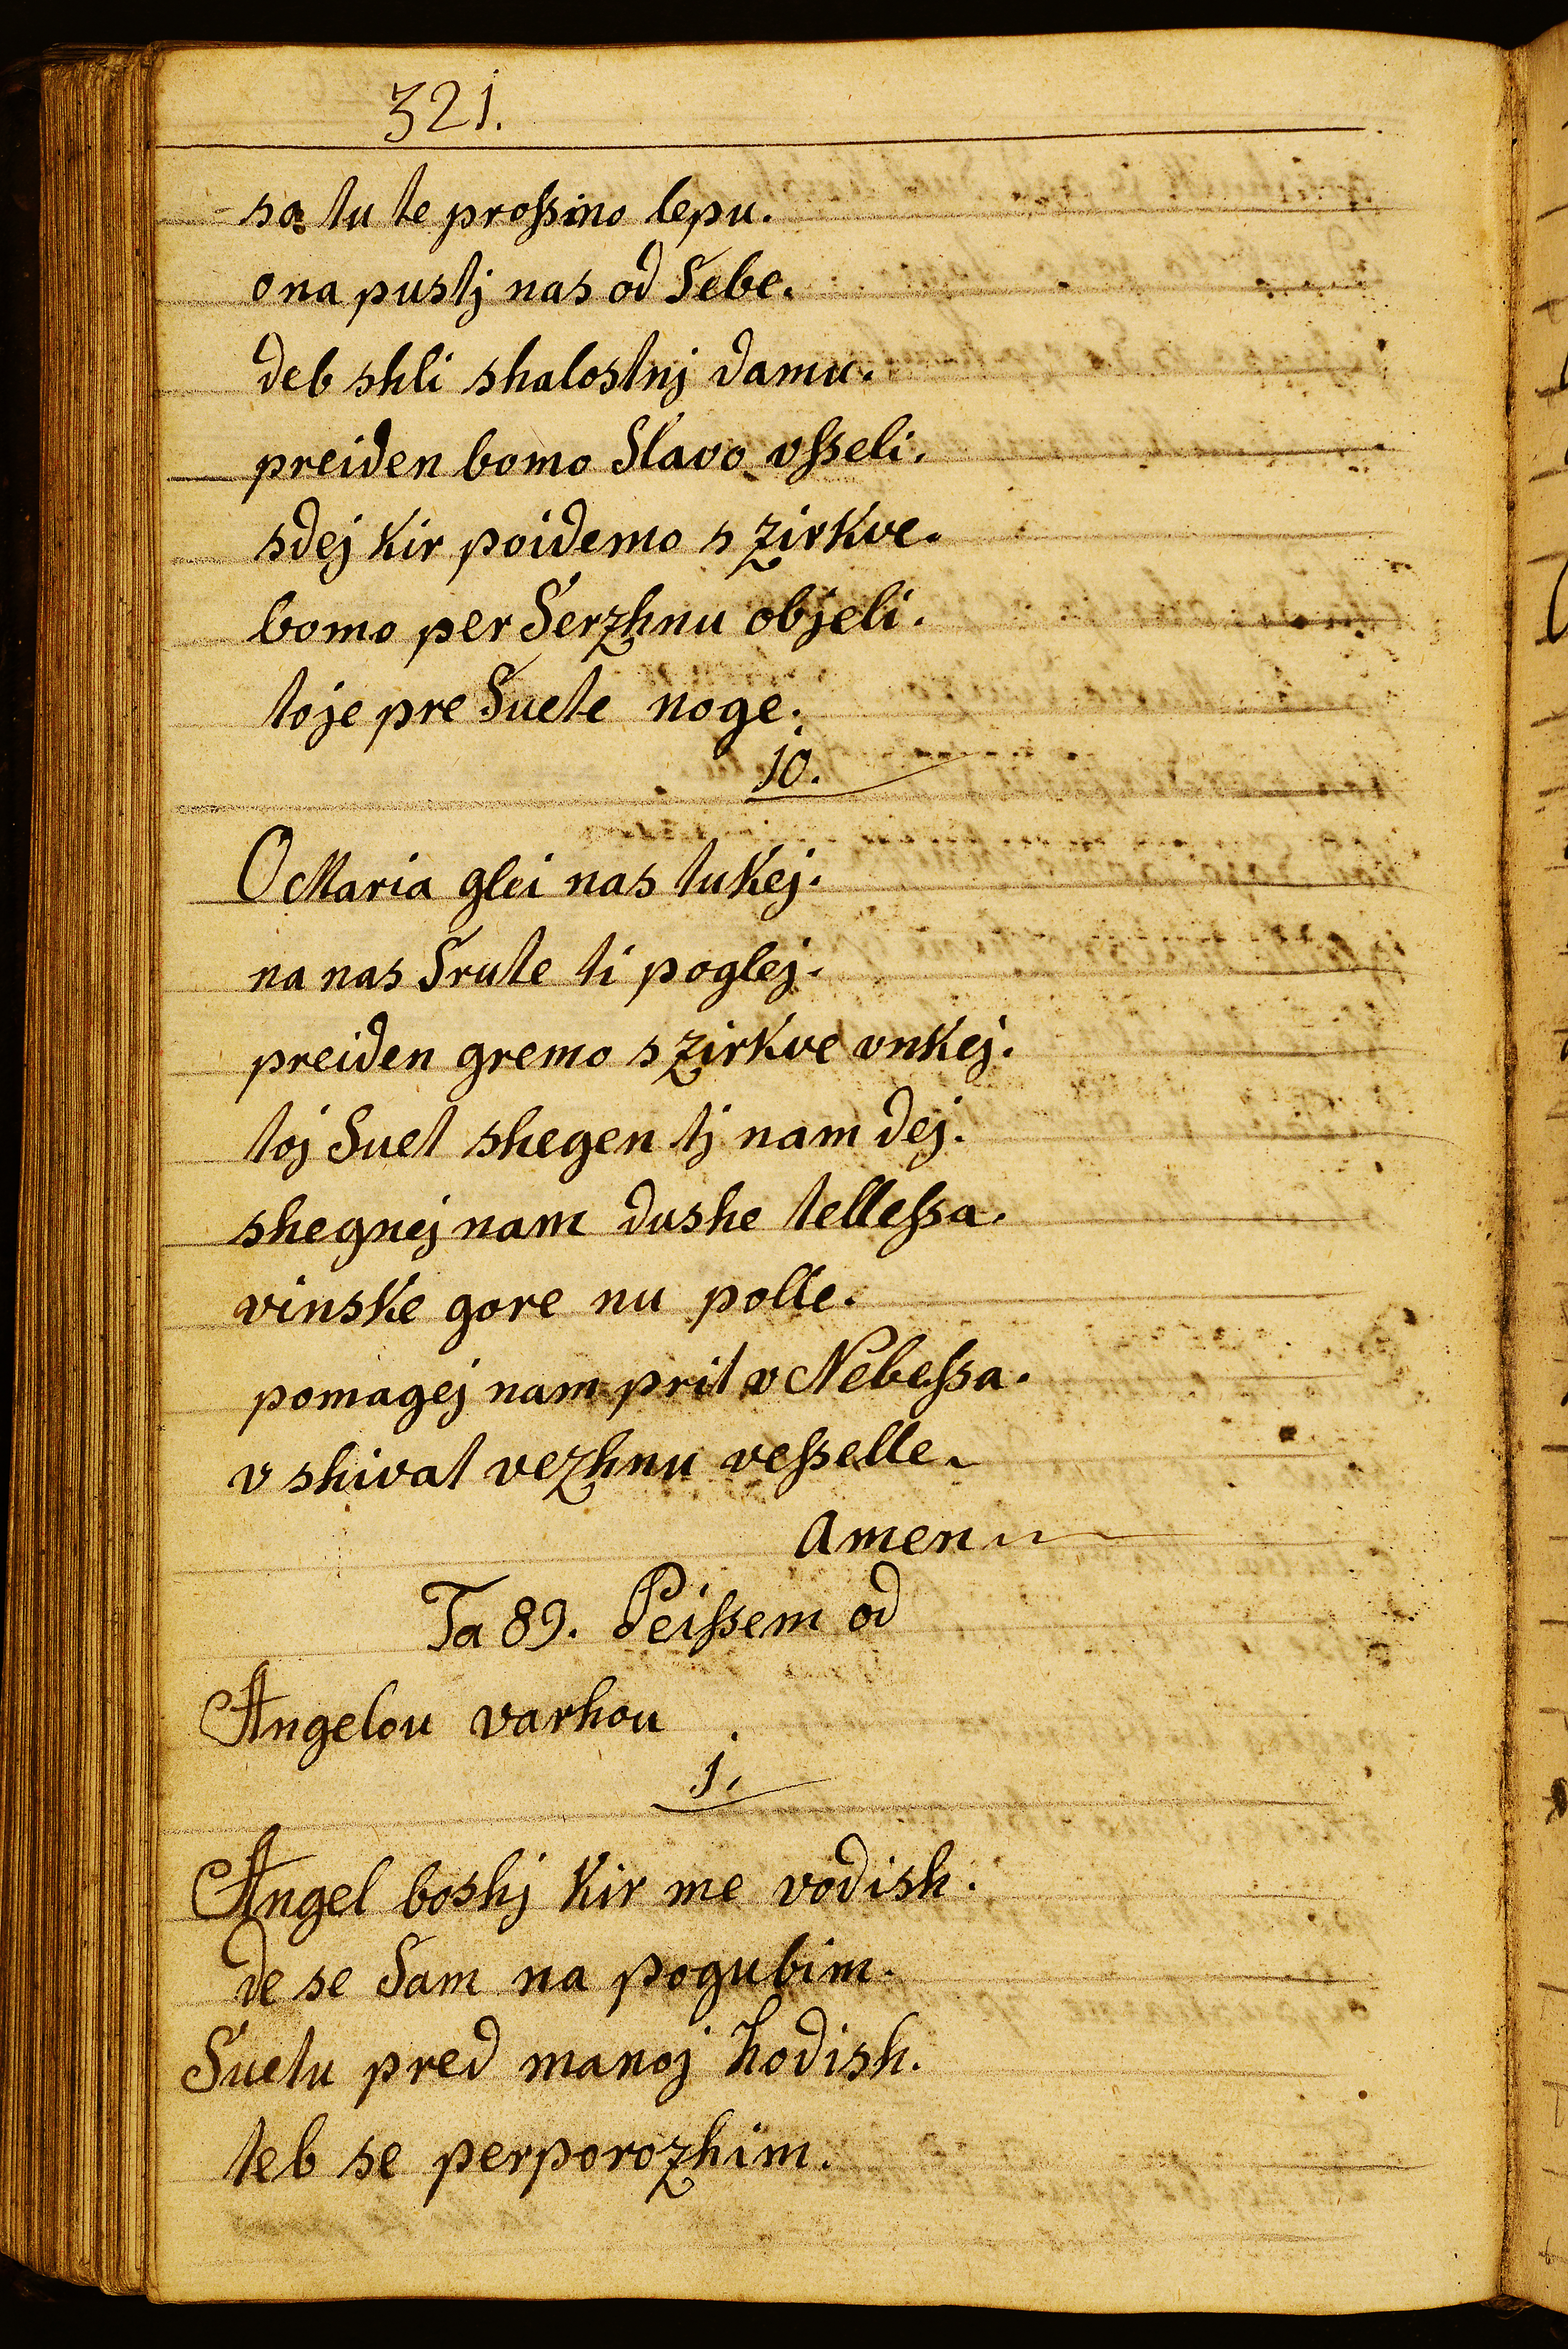 321.
sa tu te proſsino lepu.
ona pustj nas od Sebe.
deb shli shalostnj damu.
preiden bomo Slavo vſseli.
sdej Kir poidemo s zirkve.
bomo per Serzhnu objeli.
toje pre Suete noge.
10.
O Maria glei nas tukej.
na nas Srute ti poglej.
preiden gremo s zirkve vnkej.
toj Suet shegen tj nam dej.
shegnej nam dushe telleſsa.
vinske gore nu polle.
pomagej nam prit v Nebeſsa.
v shivat vezhnu veſselle.
Amen
Ta 89. Peiſsem od
Angelou varhou
1.
Angel boshj Kir me vodish.
de se Sam na pogubim.
Suetu pred manoj hodish.
teb se perporozhim.